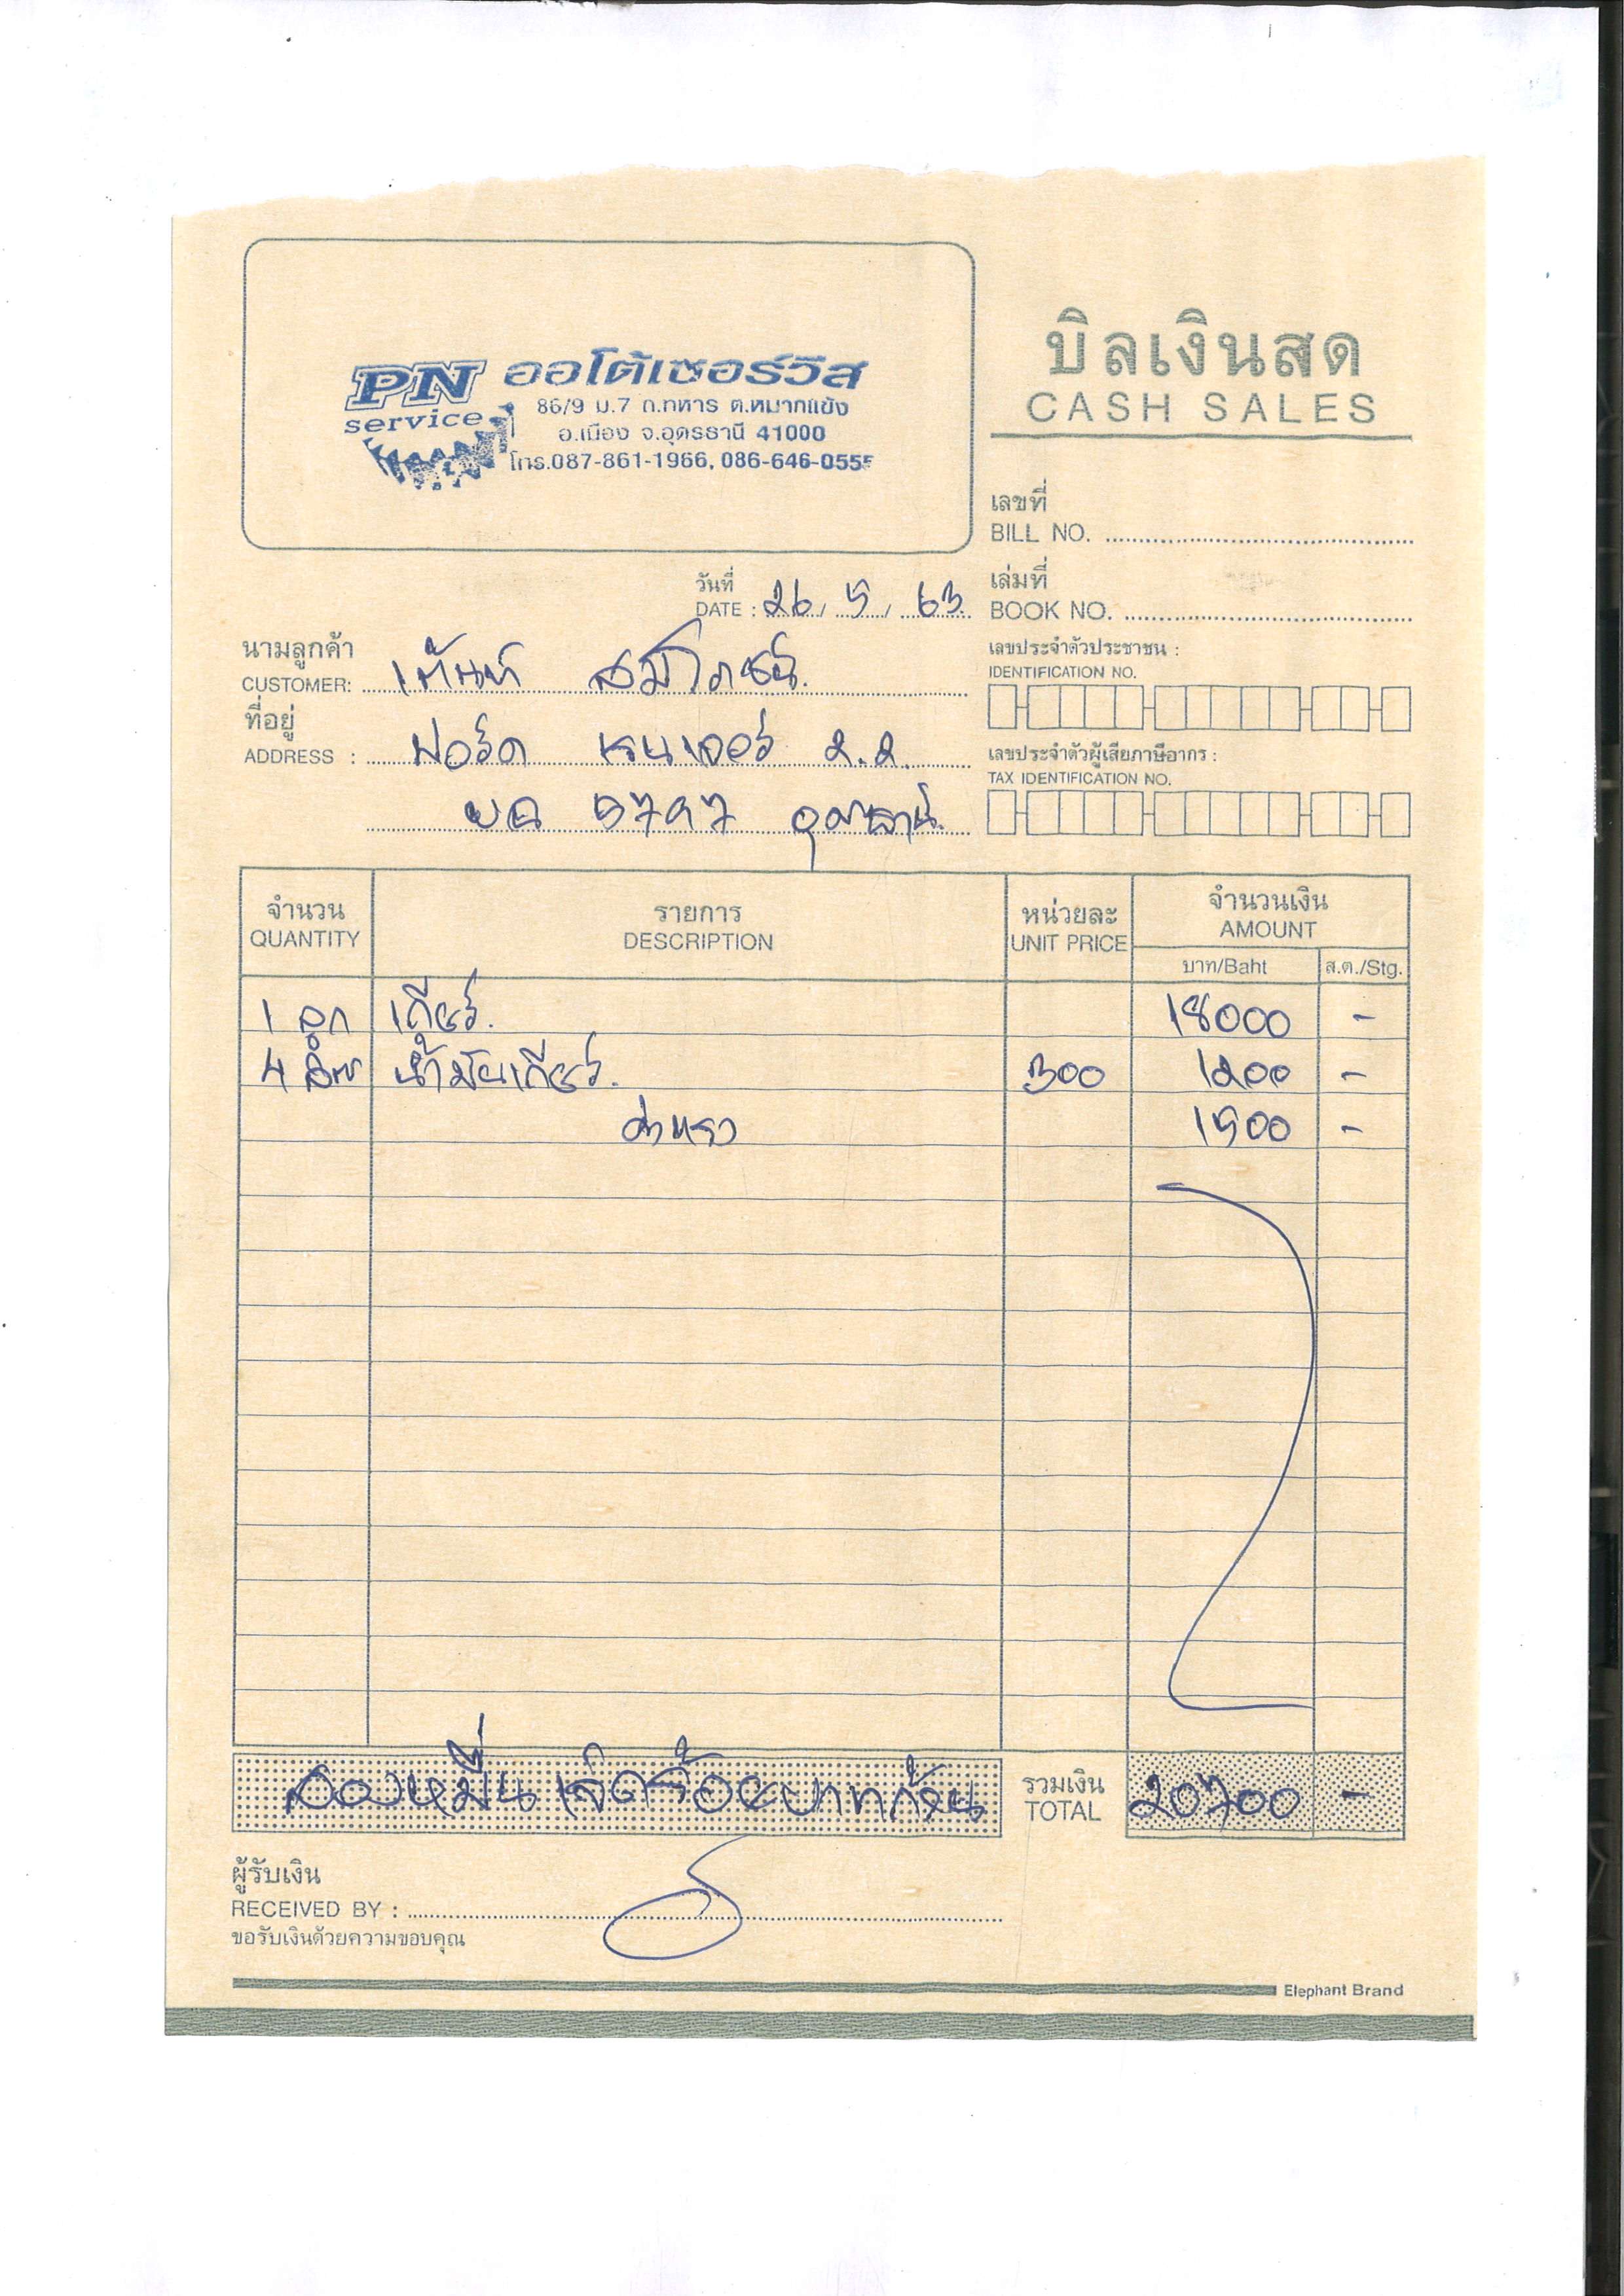 PN ออโต้เซอร์วิส
service
86/9 ม.7 ถ.ทหาร ต.หมากแข้ง
อ.เมือง จ.อุดรธานี 41000
โทร.087-861-1966, 086-646-0555
บิลเงินสด
CASH SALES
เลขที่
BILL NO.
เล่มที่
BOOK NO.
วันที่
DATE : 26 / 5 / 63
นามลูกค้า
CUSTOMER: เต้นท์
ที่อยู่
ADDRESS : ฟอร์ด เรนเจอร์ 2.2
5797 อุดรธานี
เลขประจำตัวประชาชน :
IDENTIFICATION NO.
เลขประจำตัวผู้เสียภาษีอากร :
TAX IDENTIFICATION NO.
จำนวน รายการ หน่วยละ จำนวนเงิน
QUANTITY DESCRIPTION UNIT PRICE AMOUNT
บาท/Baht ส.ต./Stg.
1 ลูก เกียร์. 18000 -
4 ลิตร น้ำมันเกียร์. 300 1200 -
ค่าแรง 1500 -
สองหมื่นเจ็ดร้อยบาทถ้วน รวมเงิน 20700 -
TOTAL
ผู้รับเงิน
RECEIVED BY :
ขอรับเงินด้วยความขอบคุณ
Elephant Brand